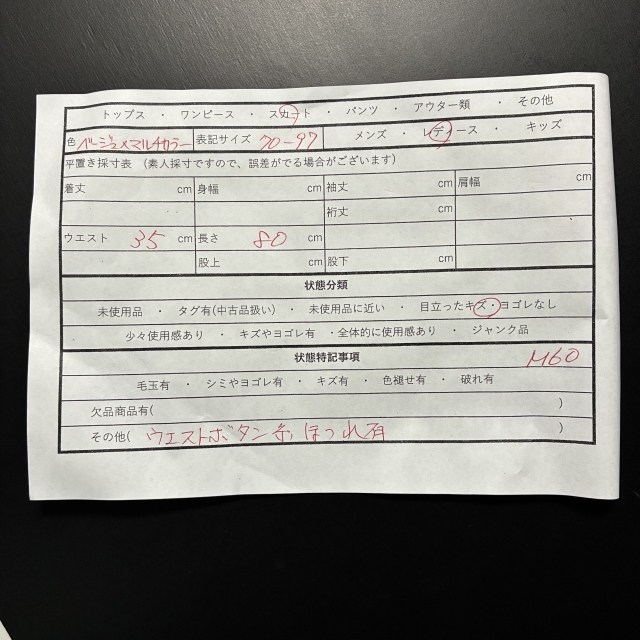 トップス ・ ワンピース ・ スカート ・ パンツ ・ アウター類 ・ その他
色 ベージュ×マルチカラー 表記サイズ 70-97 メンズ ・ レディース ・ キッズ
平置き採寸表 （素人採寸ですので、誤差がでる場合がございます）
着丈 cm 身幅 cm 袖丈 cm 肩幅 cm
裄丈 cm
ウエスト 35 cm 長さ 80 cm
股上 cm 股下 cm
状態分類
未使用品 ・ タグ有(中古品扱い) ・ 未使用品に近い ・ 目立ったキズ・ヨゴレなし
少々使用感あり ・ キズやヨゴレ有 ・全体的に使用感あり ・ ジャンク品
状態特記事項
M60
毛玉有 ・ シミやヨゴレ有 ・ キズ有 ・ 色褪せ有 ・ 破れ有
欠品商品有( )
その他( ウエストボタン糸ほつれ有 )